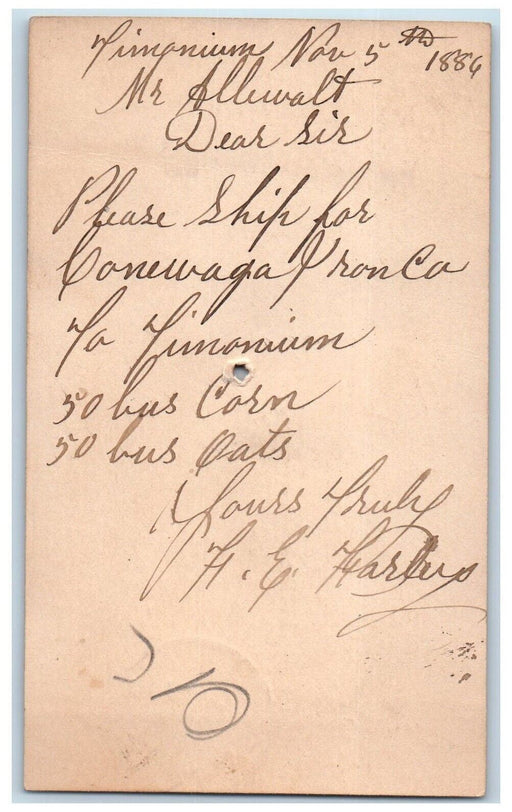 Timonium Nov 5th 1886
Mr Allewalt
Dear Sir
Please Ship for
Conewaga Iron Co
To Timonium
50 bus Corn
50 bus Oats
Yours Truly
H. E.